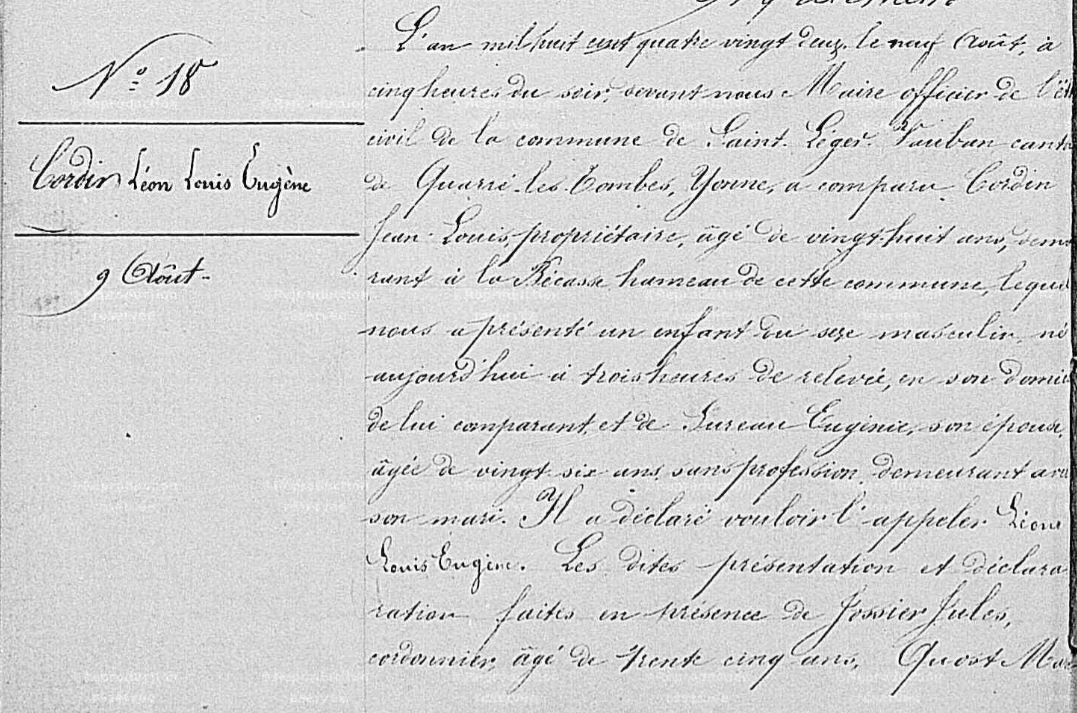 N° 18
Cordin Léon Louis Eugène
9 Août.
L'an mil huit cent quatre vingt deux, le neuf Août, à
cinq heures du soir, devant nous Maire officier de l'ét
civil de la commune de Saint. Léger. Vauban canto
de Quarré-les-Tombes, Yonne, a comparu Cordin
Jean-Louis, propriétaire, âgé de vingt huit ans, demeu
rant à la Bécasse hameau de cette commune, lequel
nous a présenté un enfant du sexe masculin, né
aujourd'hui à trois heures de relevée, en son domic
de lui comparant, et de Bureau Eugénie, son épouse,
âgée de vingt six ans, sans profession, demeurant avec
son mari. Il a déclaré vouloir l'appeler Léon
Louis Eugène. Les dites présentation et déclara
ration faites en présence de Jossier Jules,
cordonnier, âgé de trente cinq ans, Quost